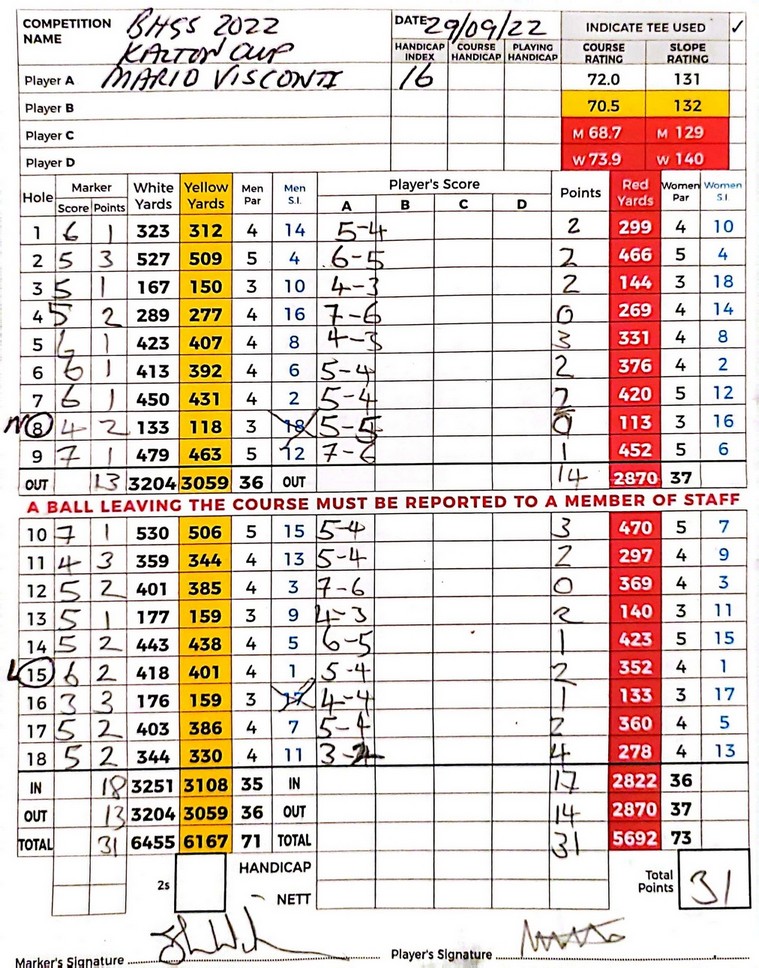 COMPETITION NAME BHSS 2022 KARTON CUP DATE 29/09/22 INDICATE TEE USED ✓
HANDICAP INDEX COURSE HANDICAP PLAYING HANDICAP COURSE RATING SLOPE RATING
Player A MARIO VISCONTI 16 72.0 131
Player B 70.5 132
Player C M 68.7 M 129
Player D W 73.9 W 140
Hole Marker Score Points White Yards Yellow Yards Men Par Men S.I. Player's Score A B C D Points Red Yards Women Par Women S.I.
1 6 1 323 312 4 14 5-4 2 299 4 10
2 5 3 527 509 5 4 6-5 2 466 5 4
3 5 1 167 150 3 10 4-3 2 144 3 18
4 5 2 289 277 4 16 7-6 0 269 4 14
5 6 1 423 407 4 8 4-3 3 331 4 8
6 6 1 413 392 4 6 5-4 2 376 4 2
7 6 1 450 431 4 2 5-4 2 420 5 12
N 8 4 2 133 118 3 18 5-5 0 113 3 16
9 7 1 479 463 5 12 7-6 1 452 5 6
OUT 13 3204 3059 36 OUT 14 2870 37
A BALL LEAVING THE COURSE MUST BE REPORTED TO A MEMBER OF STAFF
10 7 1 530 506 5 15 5-4 3 470 5 7
11 4 3 359 344 4 13 5-4 2 297 4 9
12 5 2 401 385 4 3 7-6 0 369 4 3
13 5 1 177 159 3 9 4-3 2 140 3 11
14 5 2 443 438 4 5 6-5 1 423 5 15
L 15 6 2 418 401 4 1 5-4 2 352 4 1
16 3 3 176 159 3 17 4-4 1 133 3 17
17 5 2 403 386 4 7 5-4 2 360 4 5
18 5 2 344 330 4 11 3-2 4 278 4 13
IN 18 3251 3108 35 IN 17 2822 36
OUT 13 3204 3059 36 OUT 14 2870 37
TOTAL 31 6455 6167 71 TOTAL 31 5692 73
2s HANDICAP NETT Total Points 31
Marker's Signature Player's Signature